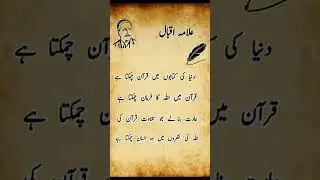 علامہ اقبال
دنیا کی کتابوں میں قرآن چمکتا ہے
قرآن میں اللہ کا فرمان چمکتا ہے
عادت بنالے جو تلاوت قرآن کی
اللہ کی نظروں میں وہ انسان چمکتا ہے